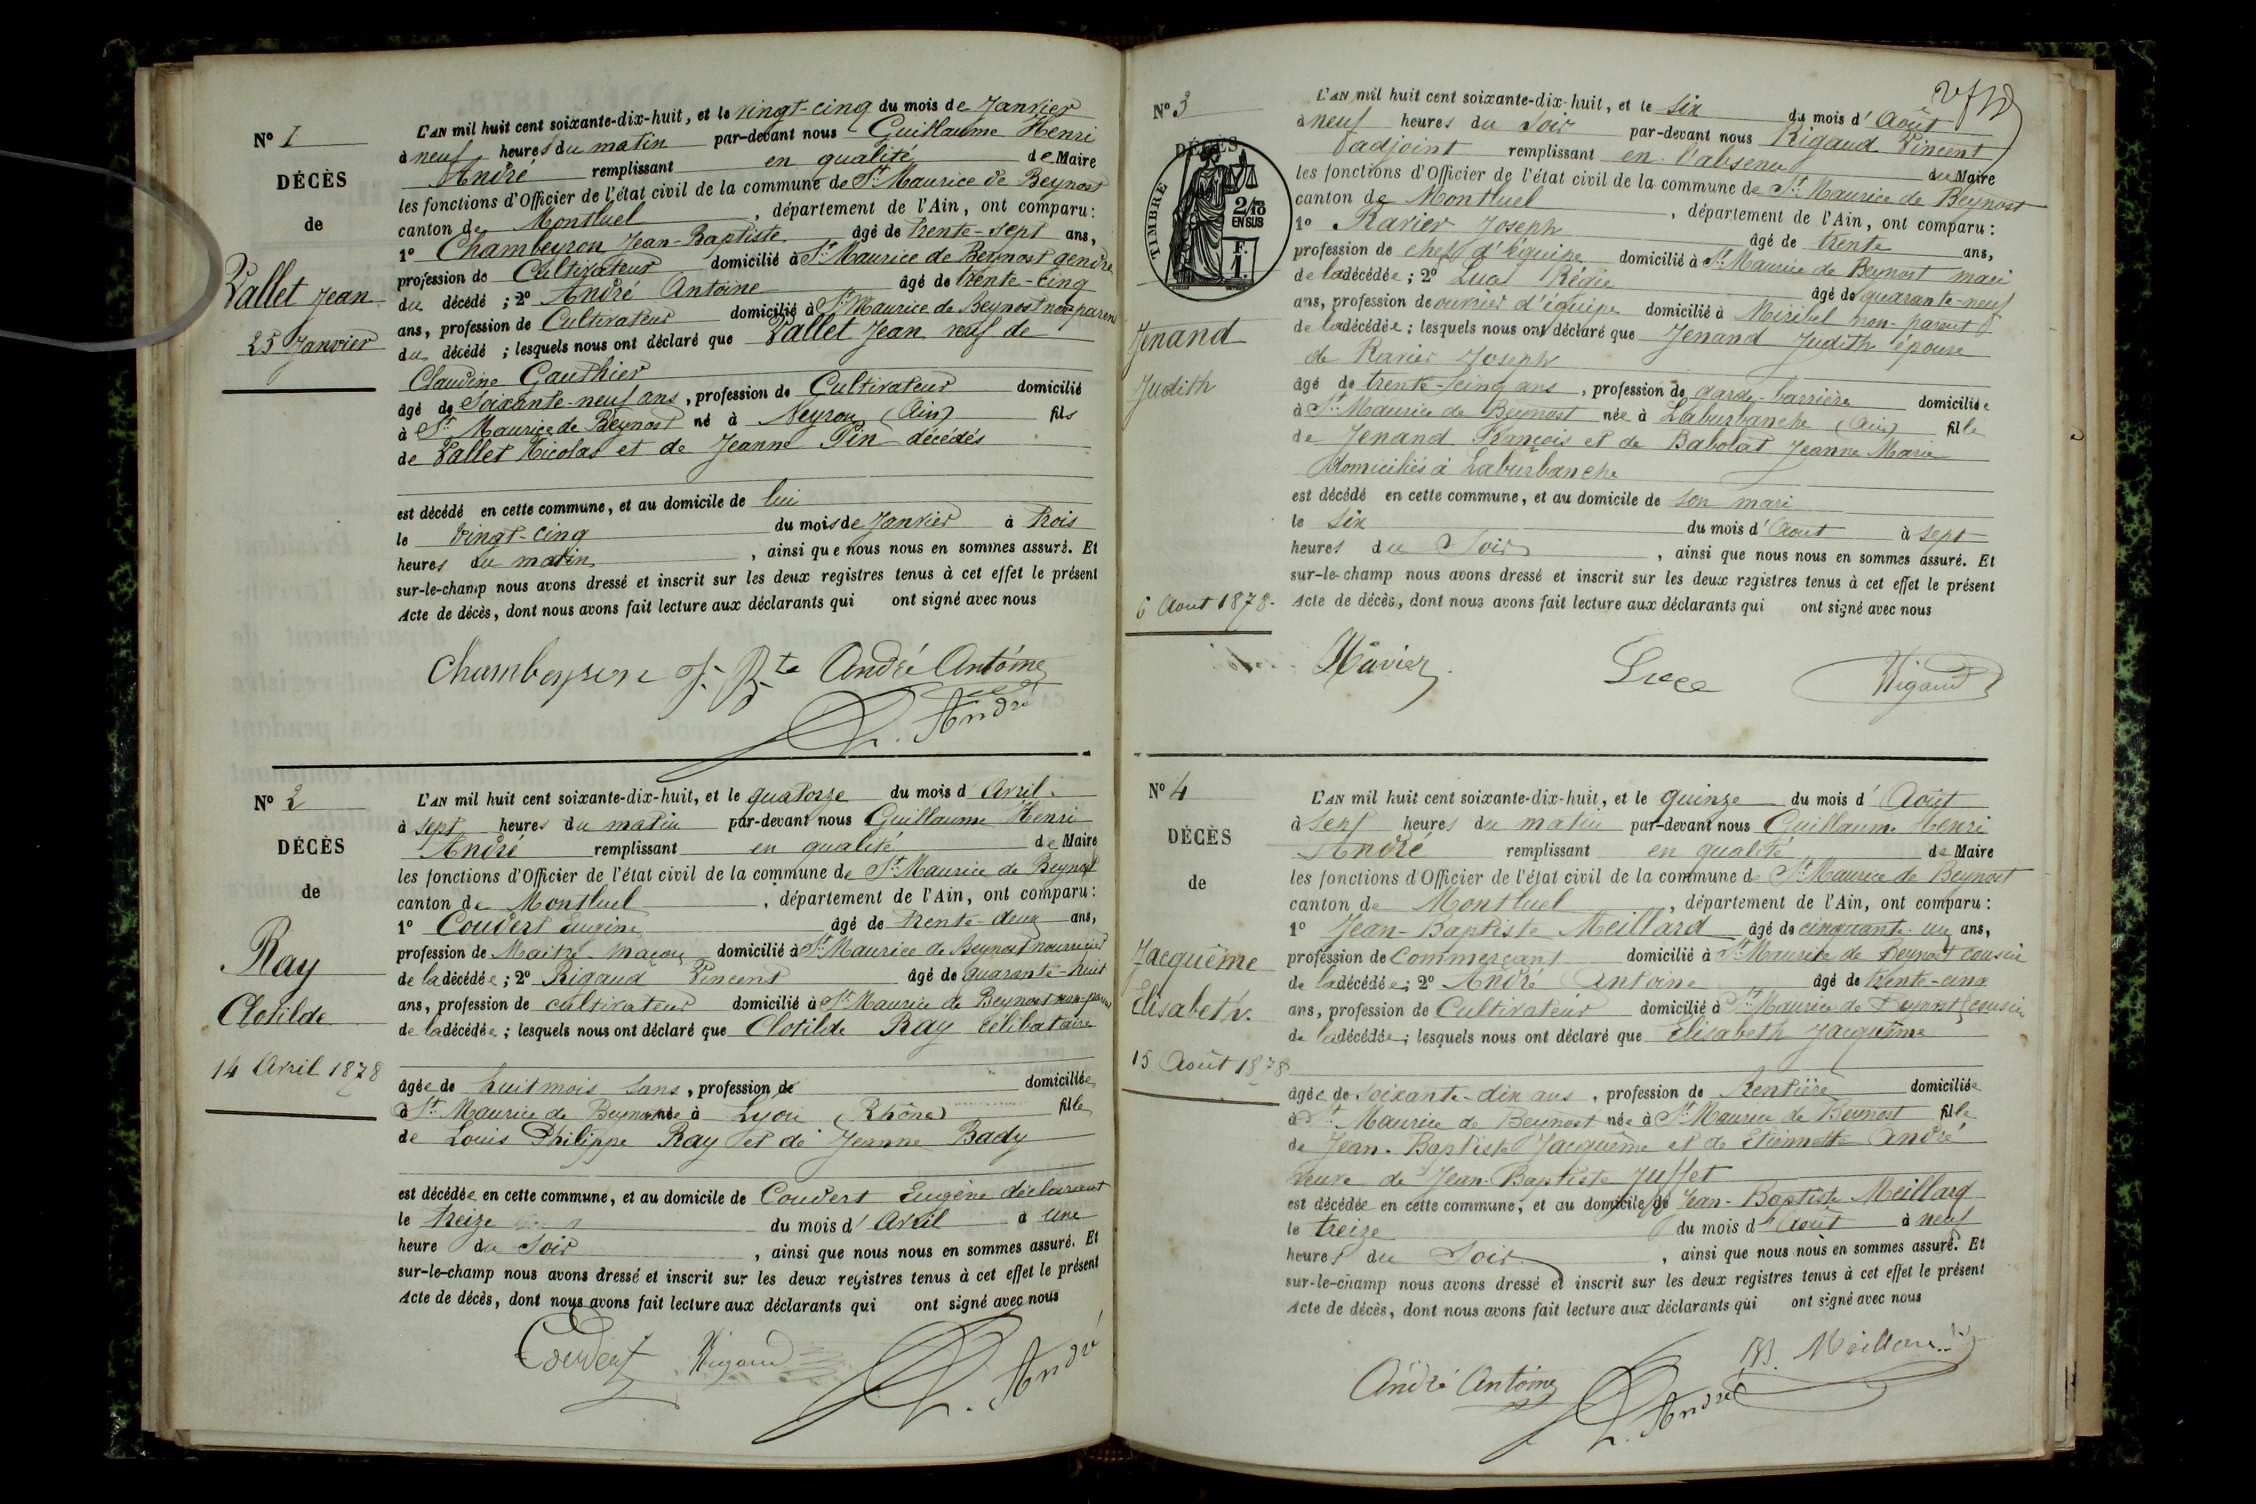 N° 1
DÉCÈS
de
Vallet Jean
25 Janvier
L'AN mil huit cent soixante-dix-huit, et le vingt-cinq du mois de Janvier
à neuf heures du matin par-devant nous Guillaume Henri
André remplissant en qualité de Maire
les fonctions d'Officier de l'état civil de la commune de St Maurice de Beynost
canton de Montluel, département de l'Ain, ont comparu:
1° Chambeyron Jean-Baptiste âgé de trente-sept ans,
profession de Cultivateur domicilié à St Maurice de Beynost gendre
du décédé; 2° André Antoine âgé de trente-cinq
ans, profession de Cultivateur domicilié à St Maurice de Beynost non-parent
du décédé; lesquels nous ont déclaré que Vallet Jean veuf de
Claudine Gauthier
âgé de Soixante-neuf ans, profession de Cultivateur domicilié
à St Maurice de Beynost né à Neyron (Ain) fils
de Vallet Nicolas et de Jeanne Pin décédés
est décédé en cette commune, et au domicile de lui
le vingt-cinq du mois de Janvier à trois
heures du matin, ainsi que nous nous en sommes assuré. Et
sur-le-champ nous avons dressé et inscrit sur les deux registres tenus à cet effet le présent
Acte de décès, dont nous avons fait lecture aux déclarants qui ont signé avec nous
Chambeyron J. Bte André Antoine
H. André
N° 2
DÉCÈS
de
Ray
Clotilde
14 Avril 1878
L'AN mil huit cent soixante-dix-huit, et le quatorze du mois d Avril
à sept heures du matin par-devant nous Guillaume Henri
André remplissant en qualité de Maire
les fonctions d'Officier de l'état civil de la commune de St Maurice de Beynost
canton de Montluel, département de l'Ain, ont comparu:
1° Couvert Eugène âgé de trente-deux ans,
profession de Maître maçon domicilié à St Maurice de Beynost nourricier
de la décédée; 2° Rigaud Vincent âgé de quarante-huit
ans, profession de cultivateur domicilié à St Maurice de Beynost non-parent
de la décédée; lesquels nous ont déclaré que Clotilde Ray célibataire
âgée de huit mois sans, profession de domiciliée
à St Maurice de Beynost née à Lyon (Rhône) fille
de Louis Philippe Ray et de Jeanne Bady
est décédée en cette commune, et au domicile de Couvert Eugène déclarant
le treize du mois d' Avril à une
heure du Soir, ainsi que nous nous en sommes assuré. Et
sur-le-champ nous avons dressé et inscrit sur les deux registres tenus à cet effet le présent
Acte de décès, dont nous avons fait lecture aux déclarants qui ont signé avec nous
Couvert Rigaud H. André
N° 3
DÉCÈS
TIMBRE
2/10
EN SUS
F.
1.
Jenand
Judith
6 Aout 1878.
L'AN mil huit cent soixante-dix-huit, et le six du mois d' Août
à neuf heures du Soir par-devant nous Rigaud Vincent
l'adjoint remplissant en l'absence du Maire
les fonctions d'Officier de l'état civil de la commune de St Maurice de Beynost
canton de Montluel, département de l'Ain, ont comparu:
1° Ravier Joseph âgé de trente ans,
profession de chef d'équipe domicilié à St Maurice de Beynost mari
de la décédée; 2° Luce Régis âgé de quarante-neuf
ans, profession de ouvrier d'équipe domicilié à Miribel non-parent
de la décédée; lesquels nous ont déclaré que Jenand Judith épouse
de Ravier Joseph
âgé de trente-cinq ans, profession de garde-barrière domiciliée
à St Maurice de Beynost née à Laburbanche (Ain) fille
de Jenand François et de Babolat Jeanne Marie
domiciliés à Laburbanche
est décédé en cette commune, et au domicile de son mari
le six du mois d' Aout à sept
heures du Soir, ainsi que nous nous en sommes assuré. Et
sur-le-champ nous avons dressé et inscrit sur les deux registres tenus à cet effet le présent
Acte de décès, dont nous avons fait lecture aux déclarants qui ont signé avec nous
Ravier Luce Rigaud
N° 4
DÉCÈS
de
Jacquême
Elisabeth.
15 Août 1878
L'AN mil huit cent soixante-dix-huit, et le quinze du mois d' Août
à sept heures du matin par-devant nous Guillaume Henri
André remplissant en qualité de Maire
les fonctions d'Officier de l'état civil de la commune d St Maurice de Beynost
canton de Montluel, département de l'Ain, ont comparu:
1° Jean-Baptiste Meillard âgé de cinquante-un ans,
profession de Commerçant domicilié à St Maurice de Beynost cousin
de la décédée; 2° André Antoine âgé de trente-cinq
ans, profession de Cultivateur domicilié à St Maurice de Beynost cousin
de la décédée; lesquels nous ont déclaré que Elisabeth Jacquême
âgée de soixante-dix ans, profession de Rentière domiciliée
à St Maurice de Beynost née à St Maurice de Beynost fille
de Jean-Baptiste Jacquême et de Etiennette André
veuve de Jean-Baptiste Juffet
est décédée en cette commune, et au domicile de Jean-Baptiste Meillard
le treize du mois d' Août à neuf
heures du Soir, ainsi que nous nous en sommes assuré. Et
sur-le-champ nous avons dressé et inscrit sur les deux registres tenus à cet effet le présent
Acte de décès, dont nous avons fait lecture aux déclarants qui ont signé avec nous
André Antoine H. André Meillard